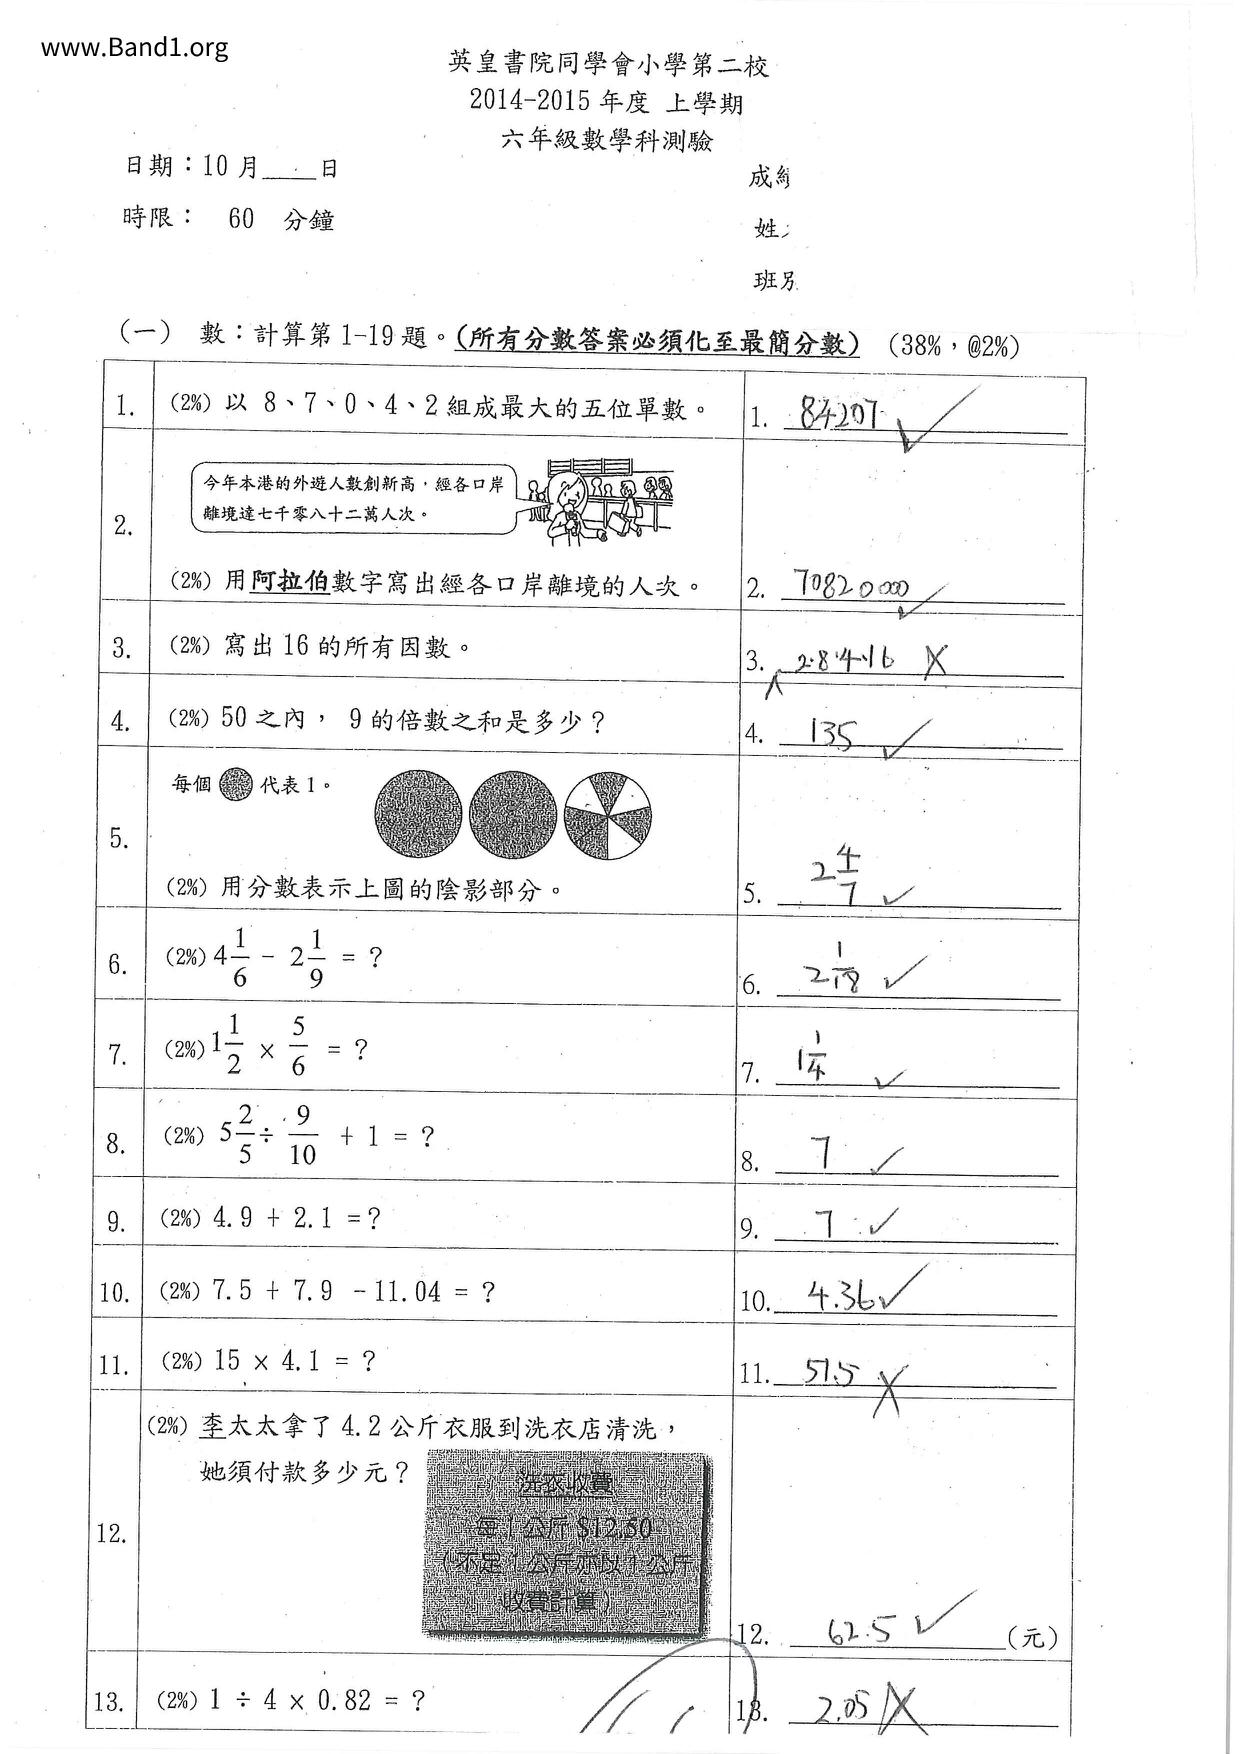 www.Band1.org
英皇書院同學會小學第二校
2014-2015 年度 上學期
六年級數學科測驗
日期：10 月____日
成績
時限： 60 分鐘
姓
班別
（一） 數：計算第 1-19 題。(所有分數答案必須化至最簡分數) (38%，@2%)
1. (2%) 以 8、7、0、4、2 組成最大的五位單數。 1. 84207
今年本港的外遊人數創新高，經各口岸
離境達七千零八十二萬人次。
2. (2%) 用阿拉伯數字寫出經各口岸離境的人次。 2. 70820000
3. (2%) 寫出 16 的所有因數。 3. 2.8.4.16
4. (2%) 50 之內， 9 的倍數之和是多少？ 4. 135
每個 代表 1。
5. (2%) 用分數表示上圖的陰影部分。 5. 2 4/7
6. (2%) 4 1/6 - 2 1/9 = ? 6. 2 1/18
7. (2%) 1 1/2 × 5/6 = ? 7. 1 1/4
8. (2%) 5 2/5 ÷ 9/10 + 1 = ? 8. 7
9. (2%) 4.9 + 2.1 =? 9. 7
10. (2%) 7.5 + 7.9 -11.04 = ? 10. 4.36
11. (2%) 15 × 4.1 = ? 11. 51.5
(2%) 李太太拿了 4.2 公斤衣服到洗衣店清洗，
她須付款多少元？
洗衣收費
每 1 公斤 $12.50
（不足 1 公斤亦以 1 公斤
收費計算）
12. 12. 62.5 (元)
13. (2%) 1 ÷ 4 × 0.82 = ? 13. 2.05